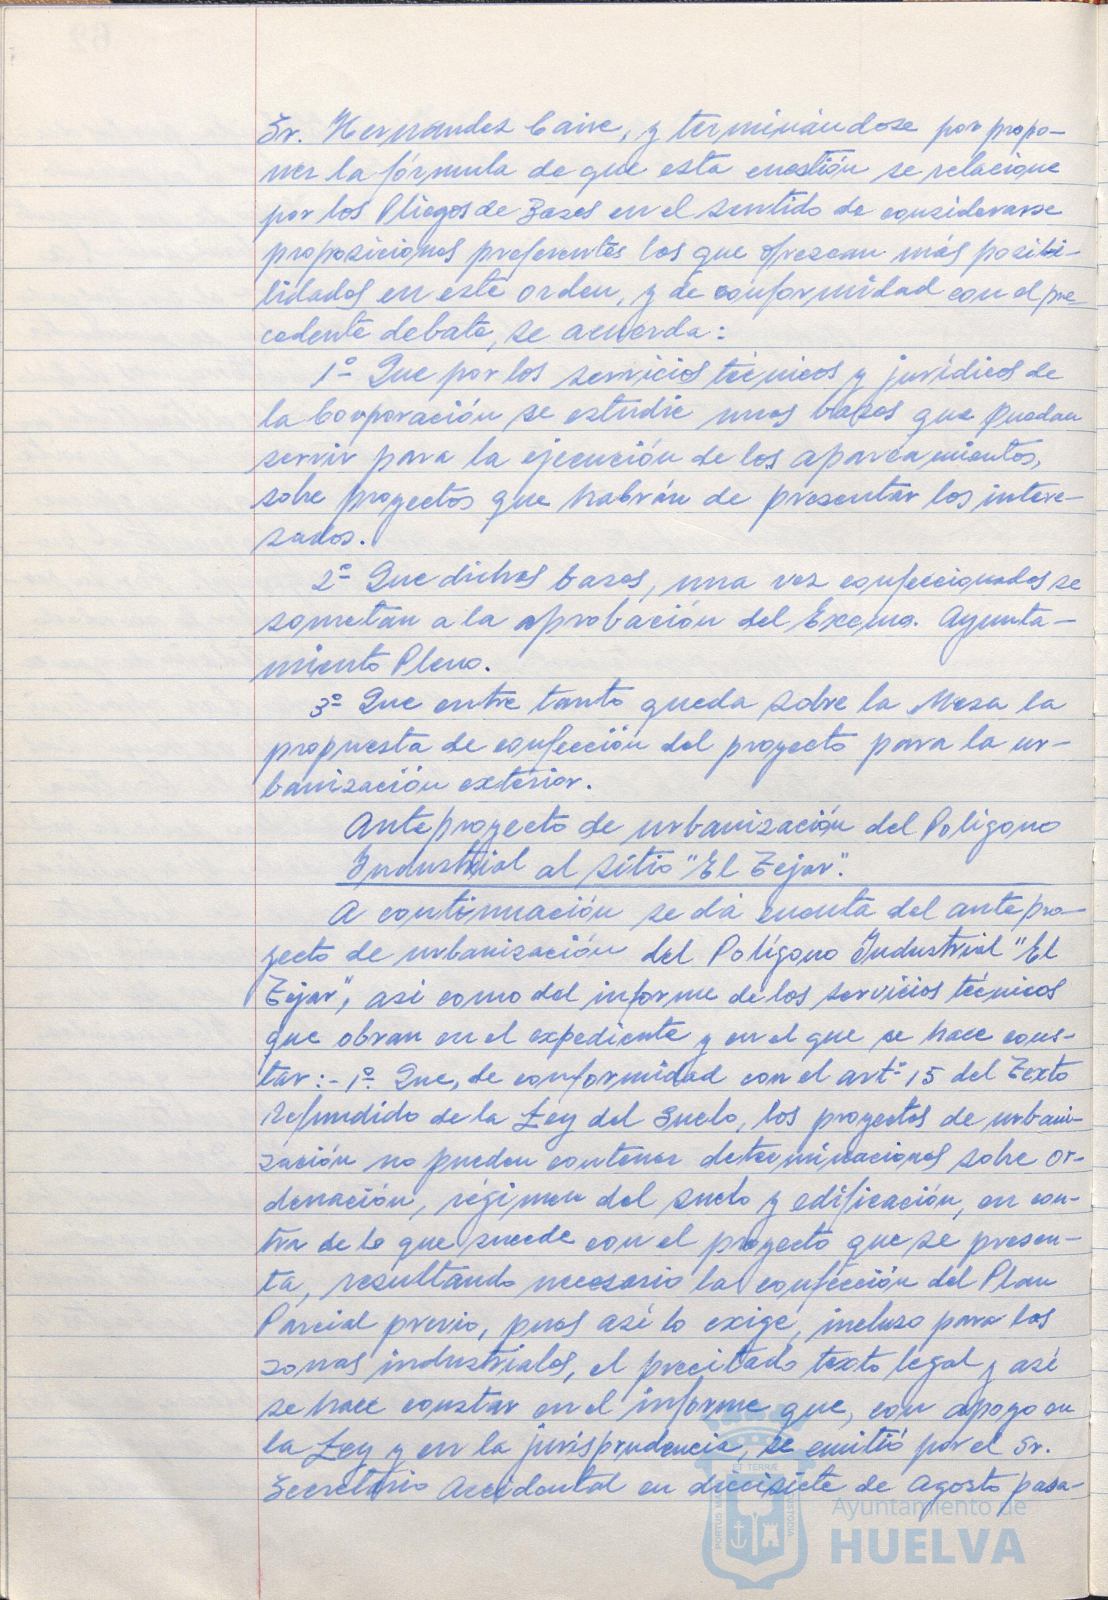 Sr. Hernandez Caire, y terminándose por propo-
ner la fórmula de que esta cuestión se relacione
por los Pliegos de Bases en el sentido de considerarse
proposiciones preferentes las que ofrezcan más posibi-
lidades en este orden, y de conformidad con el pre-
cedente debate, se acuerda:
1º Que por los servicios técnicos y jurídicos de
la Corporación se estudie unas bases que puedan
servir para la ejecución de los aparcamientos,
sobre proyectos que habrán de presentar los intere-
sados.
2º Que dichas bases, una vez confeccionadas se
sometan a la aprobación del Excmo. Ayunta-
miento Pleno.
3º Que entre tanto queda sobre la Mesa la
propuesta de confección del proyecto para la ur-
banización exterior.
Anteproyecto de urbanización del Polígono
Industrial al sitio "El Tejar".
A continuación se dá cuenta del antepro-
yecto de urbanización del Polígono Industrial "El
Tejar", asi como del informe de los servicios técnicos
que obran en el expediente y en el que se hace cons-
tar:- 1º. Que, de conformidad con el artº 15 del Texto
Refundido de la Ley del Suelo, los proyectos de urbani-
zación no pueden contener determinaciones sobre or-
denación, régimen del suelo y edificación, en con-
tra de lo que sucede con el proyecto que se presen-
ta, resultando necesario la confección del Plan
Parcial previo, pues asi lo exige, incluso para las
zonas industriales, el precitado texto legal y asi
se hace constar en el informe que, con apoyo en
la Ley y en la jurisprudencia, se emitió por el Sr.
Secretario Accidental en diecisiete de Agosto pasa-
PORTUS MARIS ET TERRAE CUSTODIA
Ayuntamiento de
HUELVA